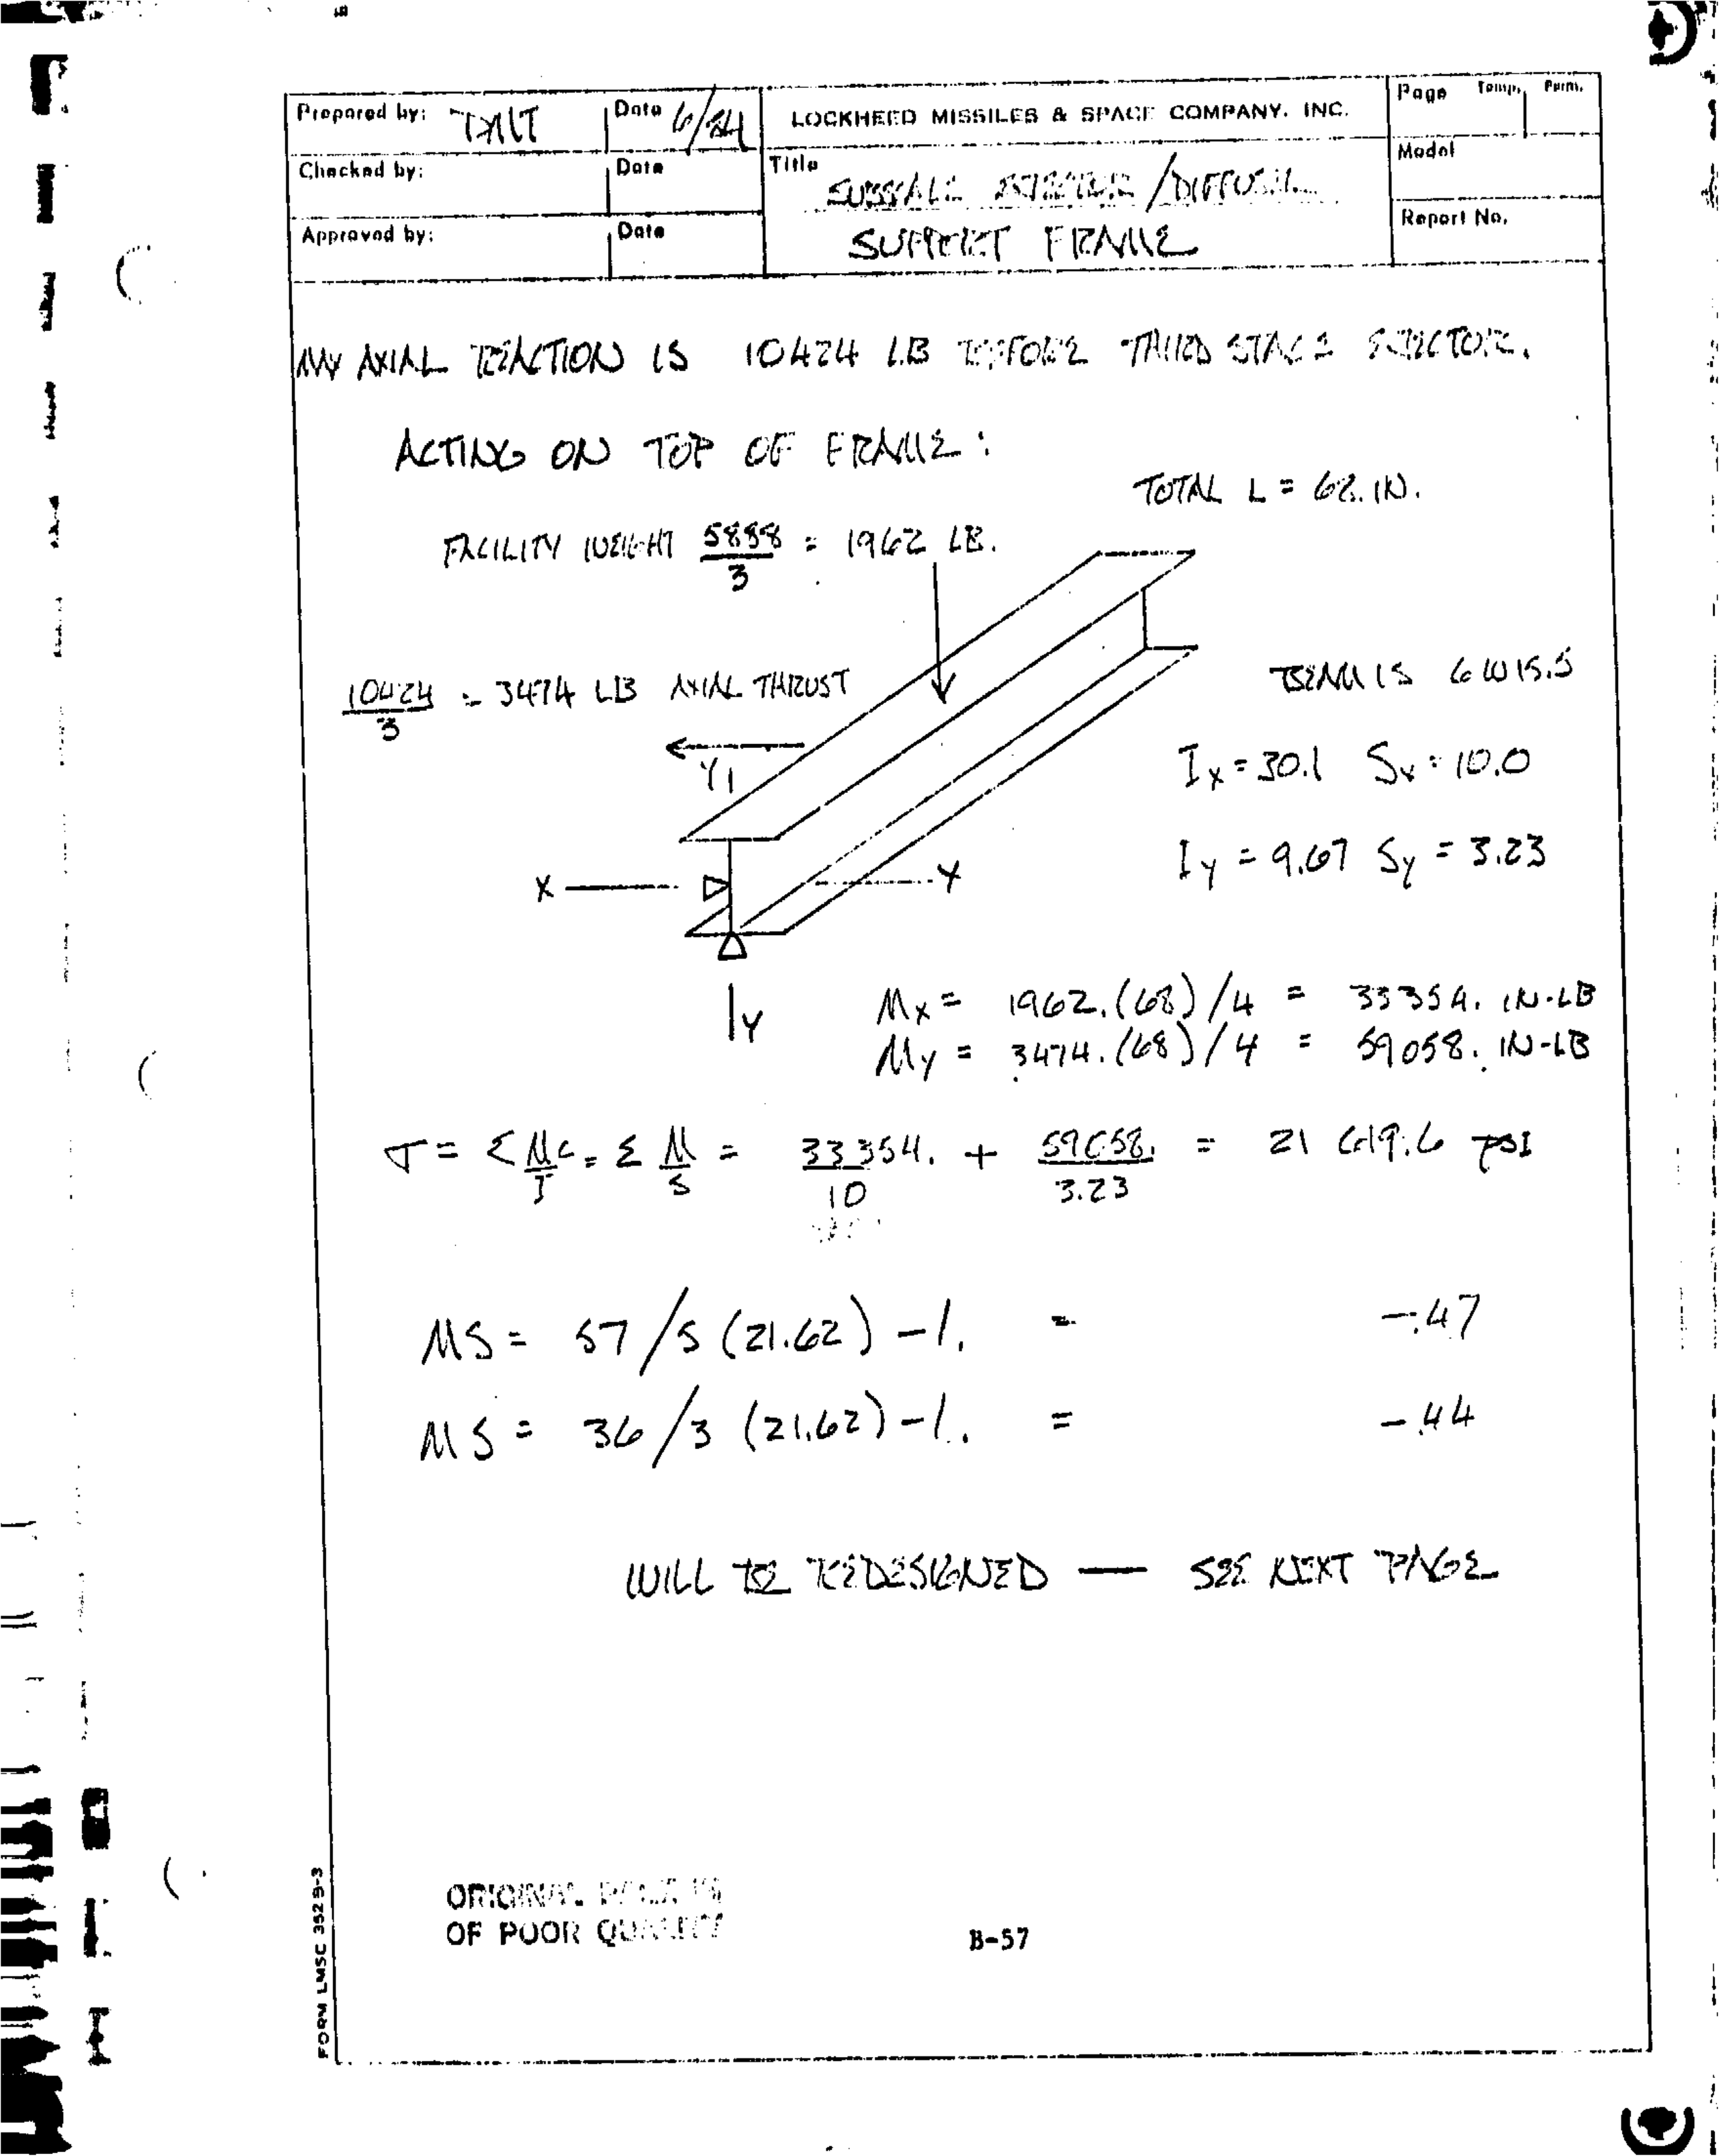 Prepared by: Date 6/24 LOCKHEED MISSILES & SPACE COMPANY, INC. Page Temp. Perm.
Checked by: Date Title Model
SUBSCALE EJECTOR / DIFFUSER
Approved by: Date SUPPORT FRAME Report No.
MAX AXIAL REACTION IS 10424 LB BEFORE THIRD STAGE EJECTOR.
ACTING ON TOP OF FRAME:
TOTAL L = 68. IN.
FACILITY WEIGHT 5888/3 = 1962 LB.
10424/3 = 3474 LB AXIAL THRUST
BEAM IS 6W15.5
Y
Ix = 30.1 Sx = 10.0
Iy = 9.67 Sy = 3.23
X X
Y
Mx = 1962.(68)/4 = 33354. IN-LB
My = 3474.(68)/4 = 59058. IN-LB
σ = Σ Mc/I = Σ M/S = 33354./10 + 59058./3.23 = 21 619.6 PSI
MS = 57/5 (21.62) - 1. = -.47
MS = 36/3 (21.62) - 1. = -.44
WILL BE REDESIGNED — SEE NEXT PAGE
ORIGINAL PAGE IS
OF POOR QUALITY
B-57
FORM LMSC 352 B-3